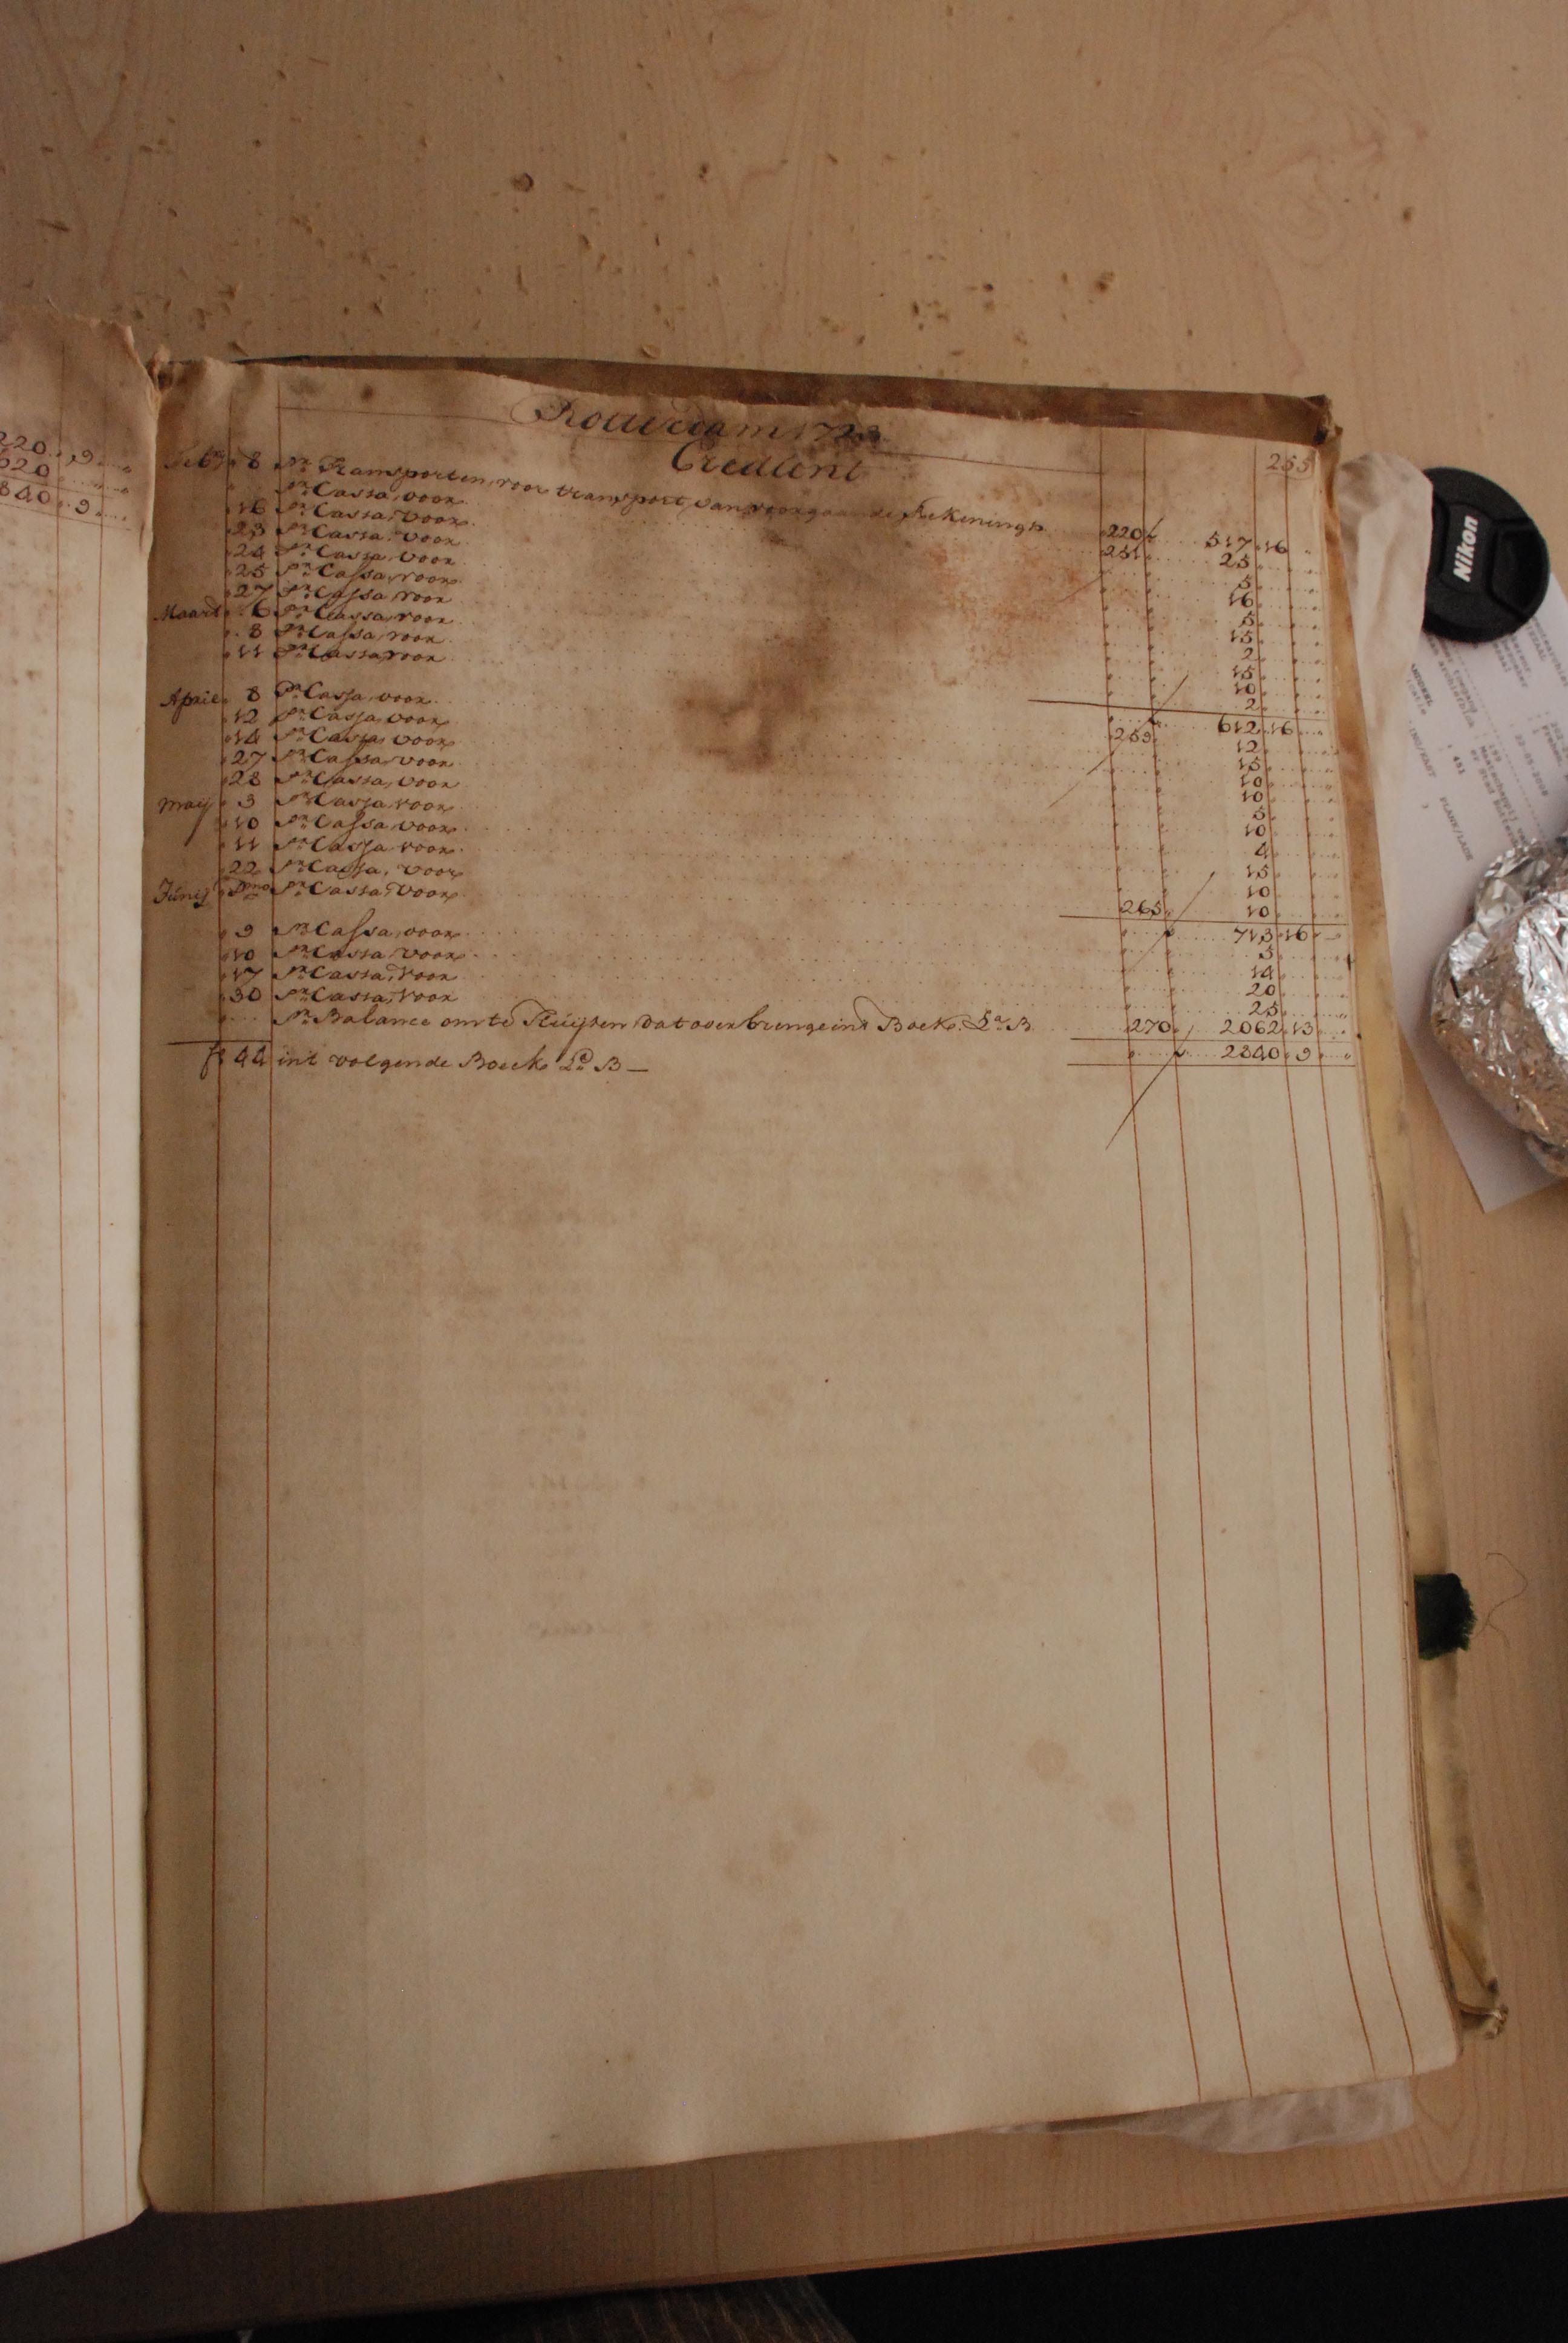 Rotterdam 1723
Credient
255
Feb 8 Pr Transporten, voor transport, van voorgaande Rekeninge 220 517 16
Pr Cassa, voor 251 25
16 Pr Cassa, voor 5
23 Pr Cassa, voor 16
24 Pr Cassa, voor 5
25 Pr Cassa, voor 15
27 Pr Cassa, voor 2
Maart 6 Pr Cassa, voor 15
8 Pr Cassa, voor 10
11 Pr Cassa, voor 2
612 16
April 8 Pr Cassa, voor 259 12
12 Pr Cassa, voor 15
14 Pr Cassa, voor 10
27 Pr Cassa, voor 10
28 Pr Cassa, voor 5
May 3 Pr Cassa, voor 10
10 Pr Cassa, voor 4
11 Pr Cassa, voor 15
22 Pr Cassa, voor 10
Junij Pmo Pr Cassa, voor 265 10
713 16
9 Pr Cassa, voor 5
10 Pr Cassa, voor 14
17 Pr Cassa, voor 20
30 Pr Cassa, voor 25
Pr Balance om te Sluijten dat overbrenge int Boek La B 270 2062 13
2840 9
f 44 int volgende Boeck La B
220 9
620
840 9
Nikon